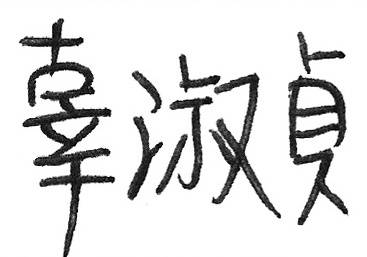 辜淑貞